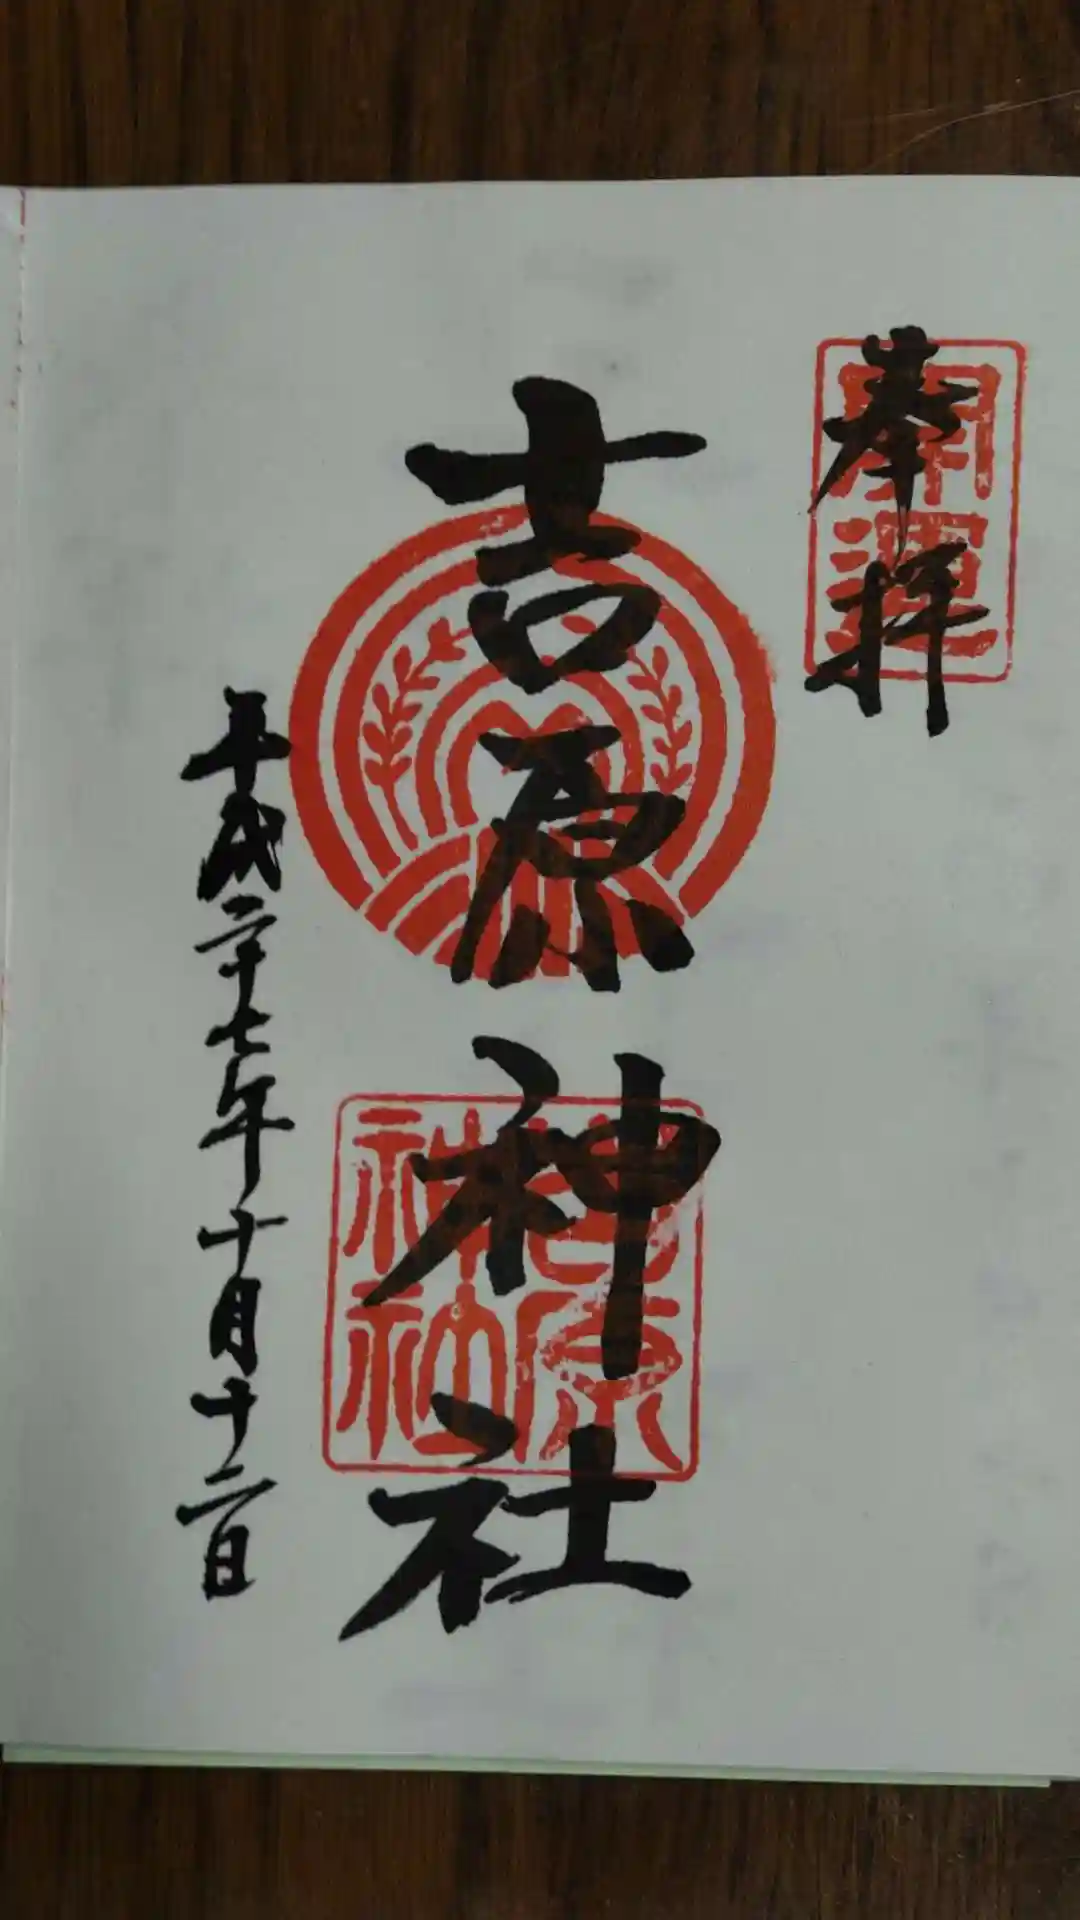 奉拝
開運
吉原神社
吉原神社
平成二十七年十月十二日